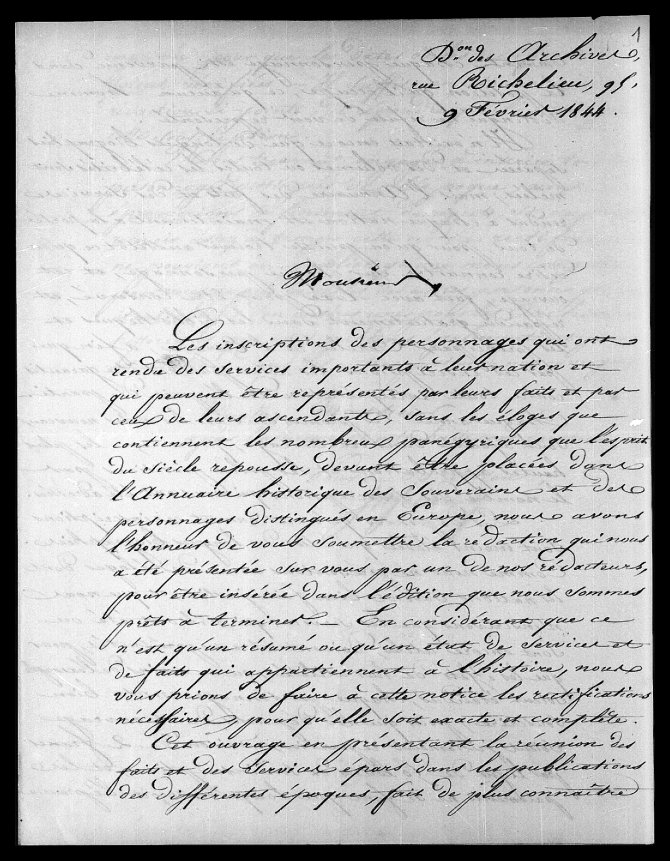 1
D.on des Archives,
rue Richelieu, 95,
9 Février 1844.
Monsieur,
Les inscriptions des personnages qui ont
rendu des services importants à leur nation et
qui peuvent être représentés par leurs faits et par
ceux de leurs ascendants, sans les éloges que
contiennent les nombreux panégyriques que l'esprit
du siècle repousse, devant être placées dans
l'Annuaire historique des Souverains et des
personnages distingués en Europe, nous avons
l'honneur de vous soumettre la rédaction qui nous
a été présentée sur vous par un de nos rédacteurs,
pour être insérée dans l'édition que nous sommes
prêts à terminer. — En considérant que ce
n'est qu'un résumé ou qu'un état de services et
de faits qui appartiennent à l'histoire, nous
vous prions de faire à cette notice les rectifications
nécessaires, pour qu'elle soit exacte et complète.
Cet ouvrage en présentant la réunion des
faits et des services épars dans les publications
des différentes époques, fait de plus connaître